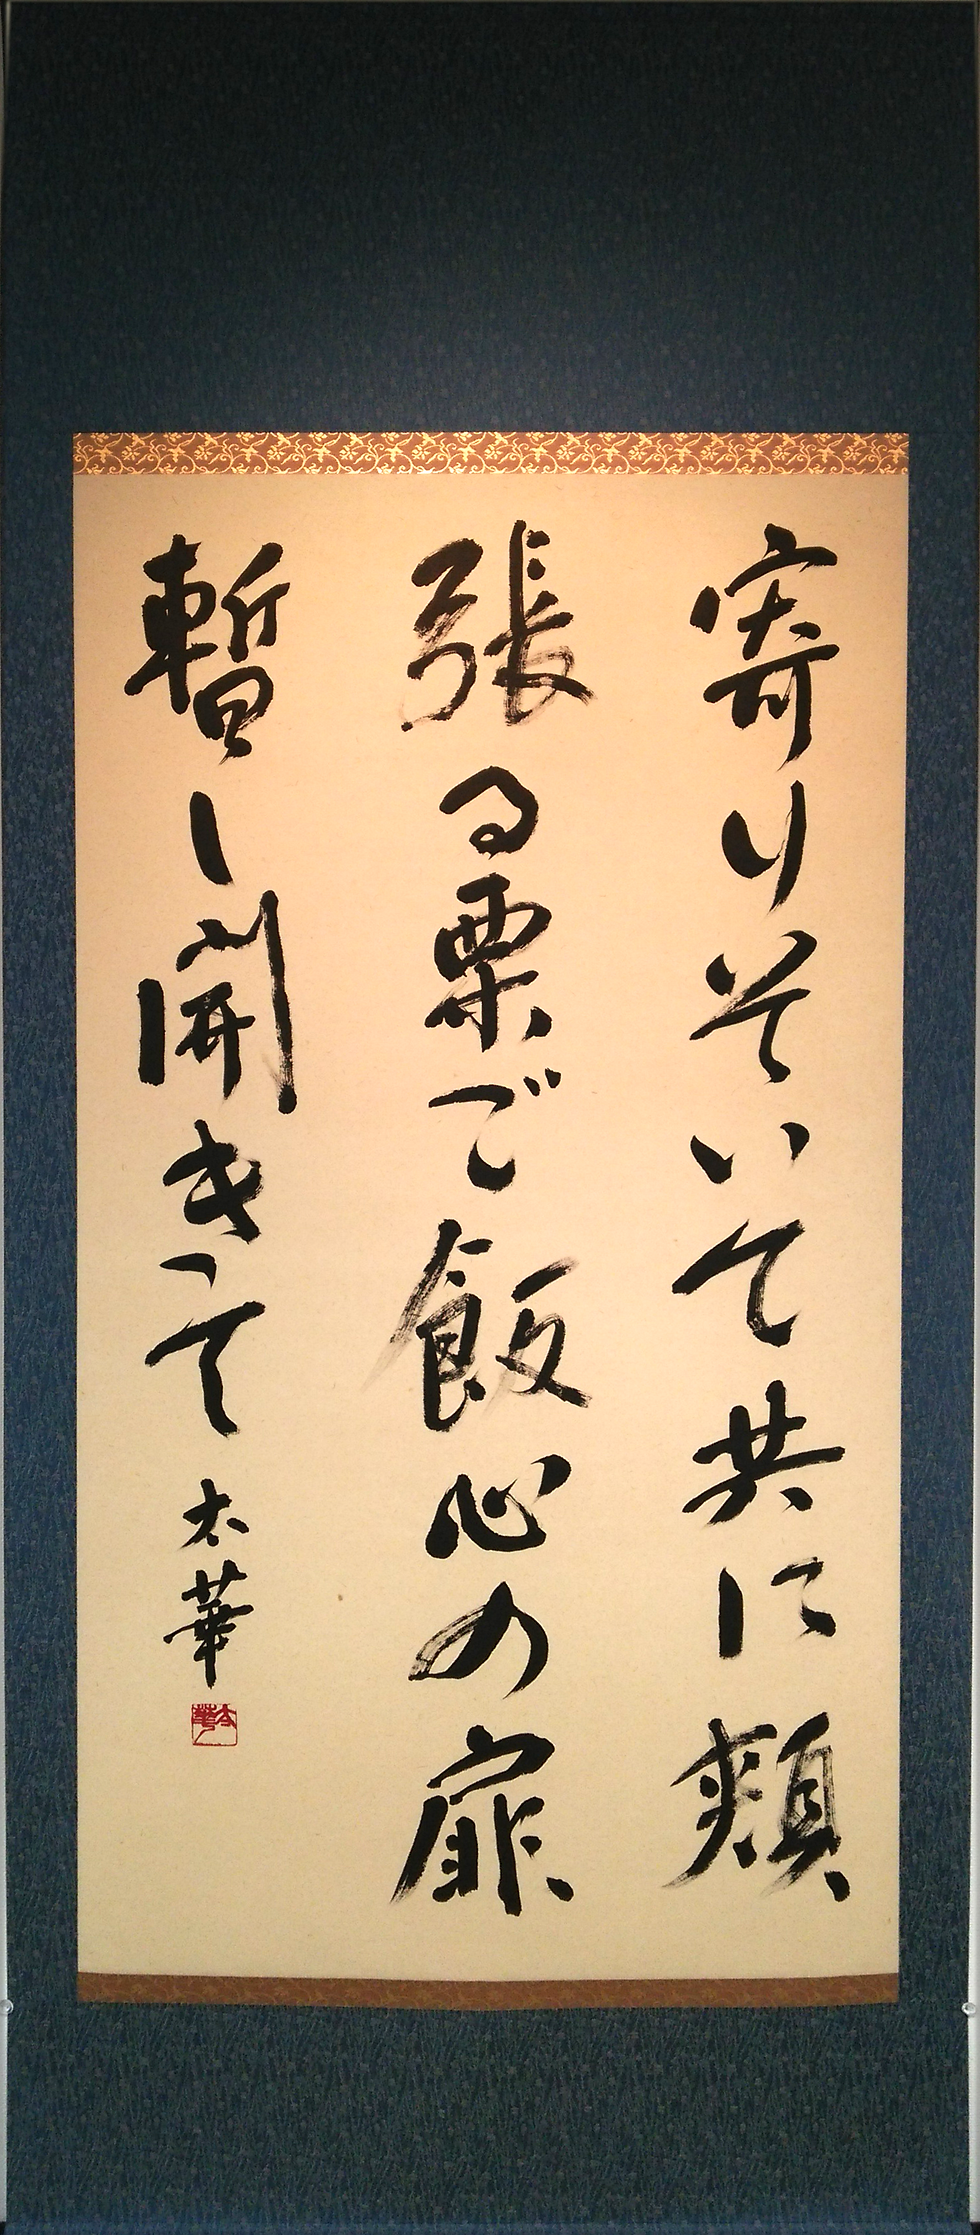 寄りそいて共に頬
張る栗ご飯心の扉
暫し開きて 太華
太華